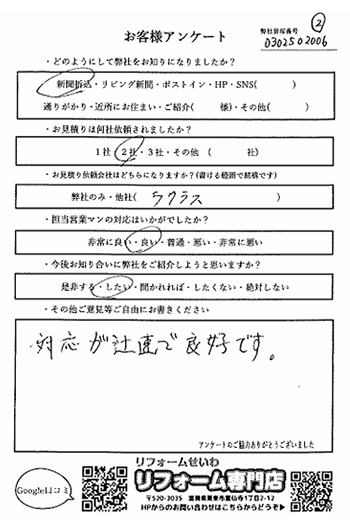 ②
お客様アンケート
弊社管理番号
0302502006
・どのようにして弊社をお知りになりましたか？
新聞折込・リビング新聞・ポストイン・HP・SNS( )
通りがかり・近所にお住まい・ご紹介( 様)・その他( )
・お見積りは何社依頼されましたか？
1社・2社・3社・その他 ( 社)
・お見積り依頼会社はどちらになりますか？(書ける範囲で結構です)
弊社のみ・他社( ラクラス )
・担当営業マンの対応はいかがでしたか？
非常に良い・良い・普通・悪い・非常に悪い
・今後お知り合いに弊社をご紹介しようと思いますか？
是非する・したい・聞かれれば・したくない・絶対しない
・その他ご意見等ご自由にお書きください
対応が迅速で良好です。
アンケートのご協力ありがとうございました
Google口コミ
リフォームせいわ
リフォーム専門店
〒520-3035 滋賀県栗東市霊仙寺1丁目2-12
HPからのお問い合わせはこちらからどうぞ▶